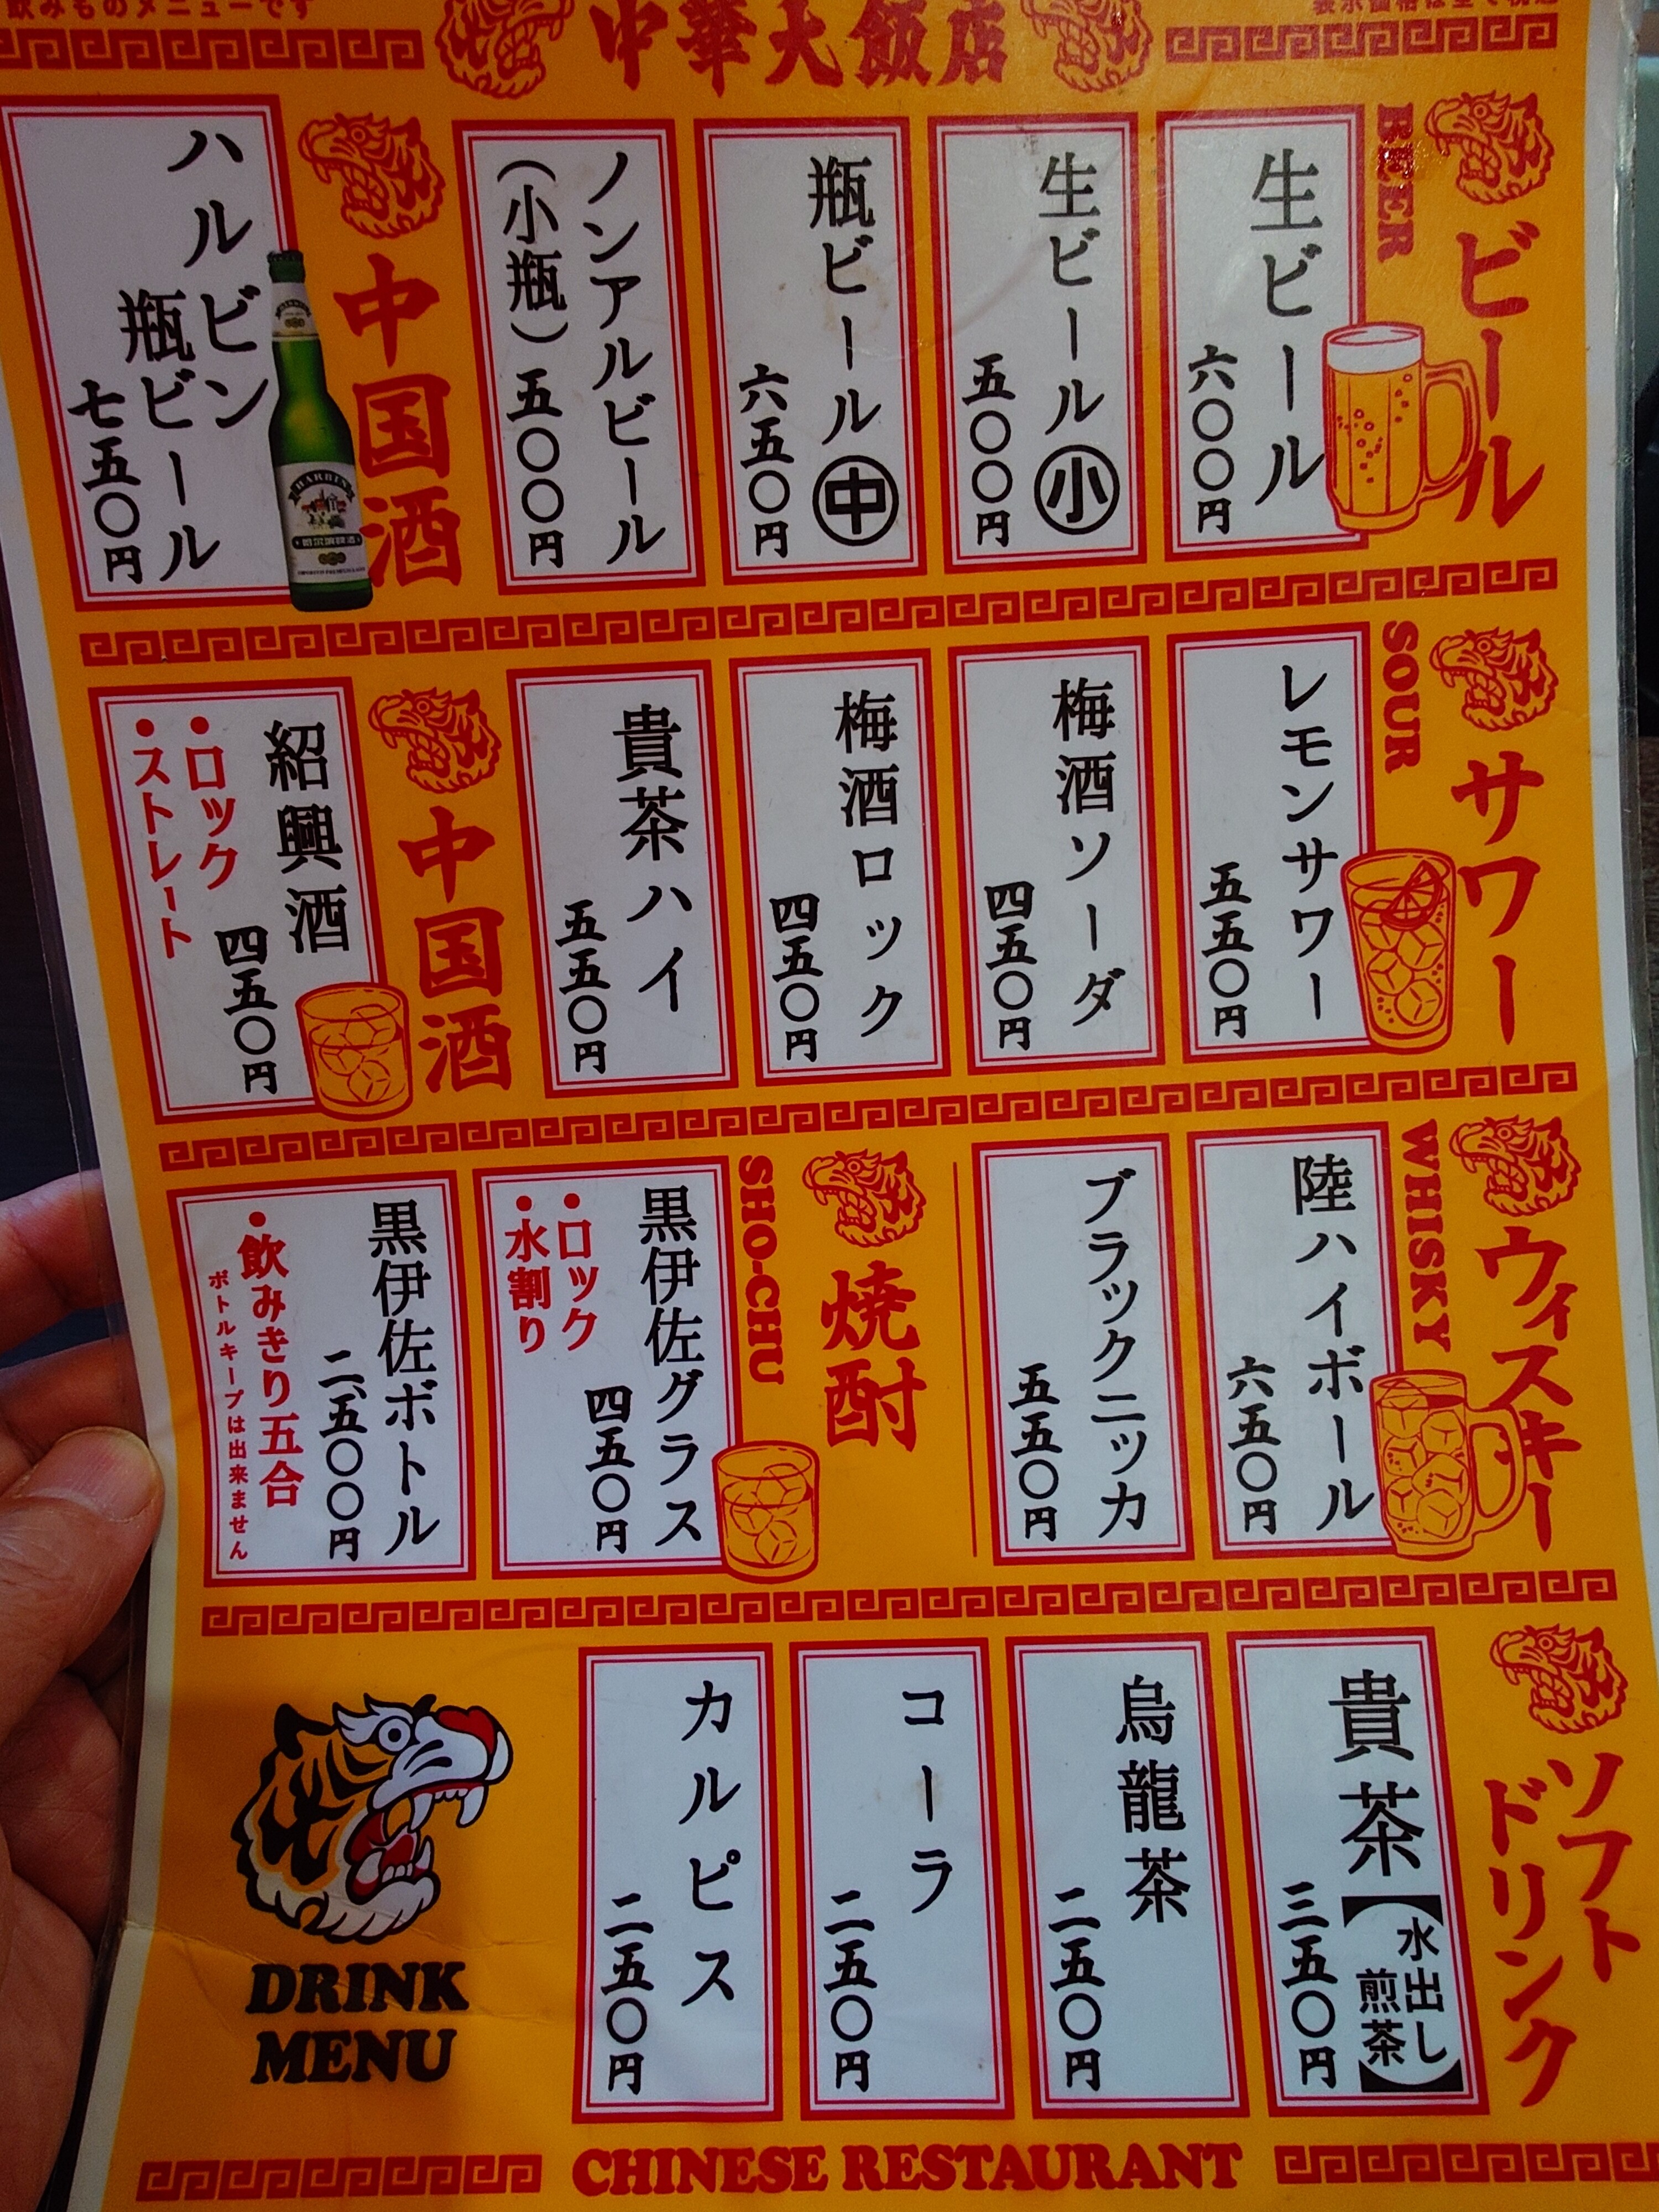 飲みものメニューです
中華大飯店
ビール
BEER
生ビール
六〇〇円
生ビール㊥小
五〇〇円
瓶ビール㊥
六五〇円
ノンアルビール
(小瓶)五〇〇円
中国酒
HARBIN
ハルビン
瓶ビール
七五〇円
サワー
SOUR
レモンサワー
五五〇円
梅酒ソーダ
四五〇円
梅酒ロック
四五〇円
貴茶ハイ
五五〇円
中国酒
紹興酒
四五〇円
●ロック
●ストレート
ウィスキー
WHISKY
陸ハイボール
六五〇円
ブラックニッカ
五五〇円
焼酎
SHO-CHU
黒伊佐グラス
四五〇円
●ロック
●水割り
黒伊佐ボトル
二、五〇〇円
●飲みきり五合
ボトルキープは出来ません
ソフト
ドリンク
貴茶【水出し
煎茶】
三五〇円
烏龍茶
二五〇円
コーラ
二五〇円
カルピス
二五〇円
DRINK
MENU
CHINESE RESTAURANT